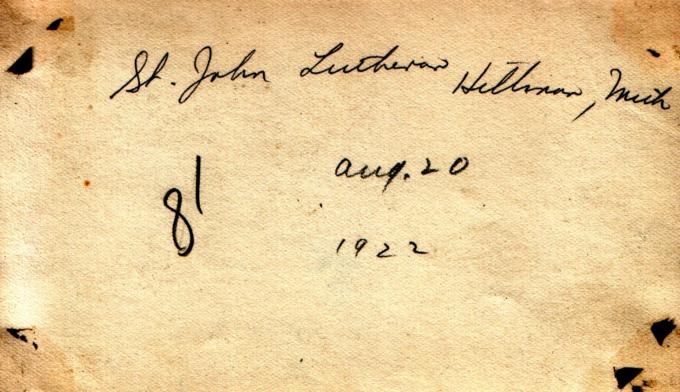 St. John Lutheran Hillman, Mich
8' Aug. 20
1922